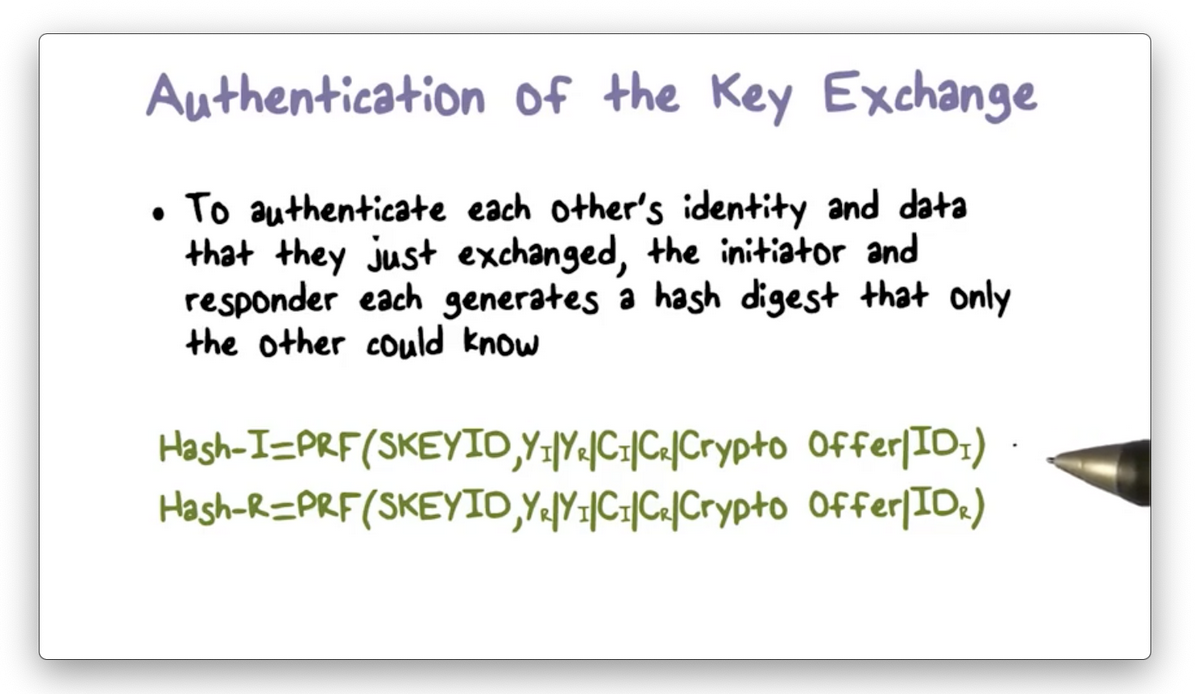 Authentication of the Key Exchange
• To authenticate each other's identity and data
that they just exchanged, the initiator and
responder each generates a hash digest that only
the other could know
Hash-I=PRF(SKEYID,Y_I|Y_R|C_I|C_R|Crypto Offer|ID_I)
Hash-R=PRF(SKEYID,Y_R|Y_I|C_I|C_R|Crypto Offer|ID_R)